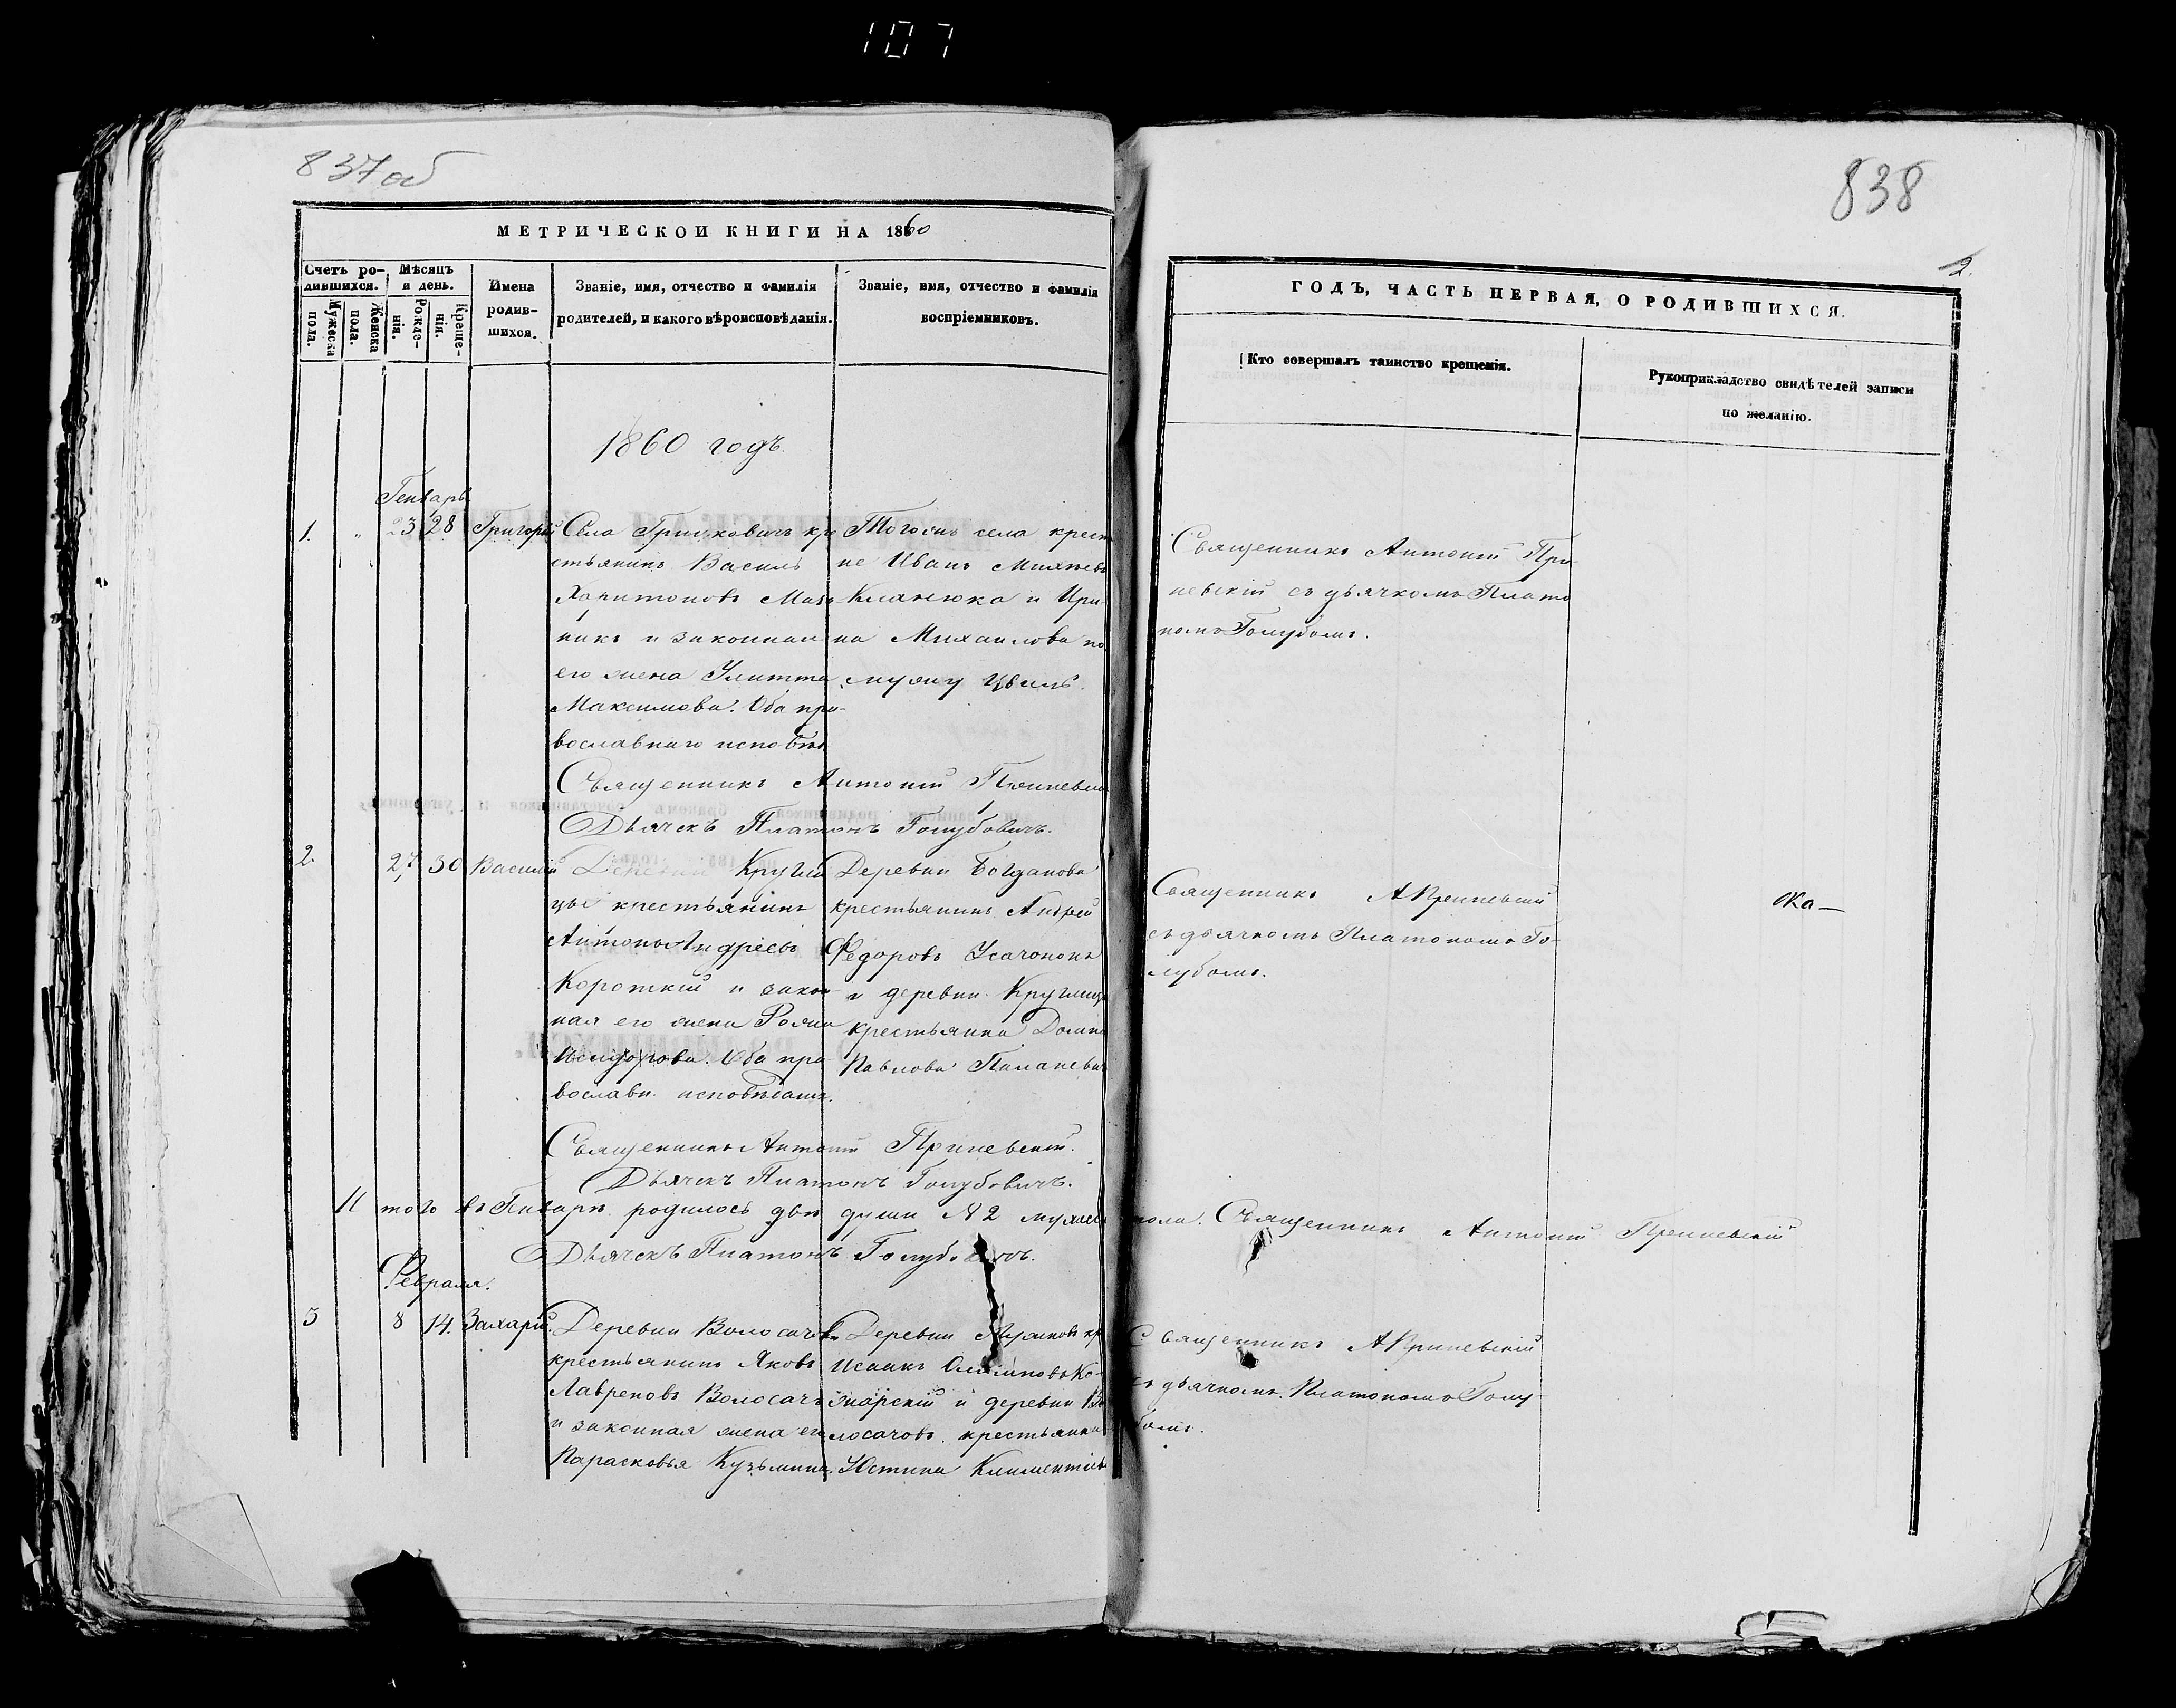 107
837 об
838
МЕТРИЧЕСКОЙ КНИГИ НА 1860
Счетъ ро-
дившихся.
Мужеска
пола.
Женска
пола.
Мѣсяцъ
и день.
Рожде-
нія.
Креще-
нія.
Имена
родив-
шихся.
Званіе, имя, отчество и фамилія
родителей, и какого вѣроисповѣданія.
Званіе, имя, отчество и фамилія
воспріемниковъ.
2.
ГОДЪ, ЧАСТЬ ПЕРВАЯ, О РОДИВШИХСЯ.
Кто совершалъ таинство крещенія.
Рукоприкладство свидѣтелей записи
по желанію.
1860 годъ
Генварь
1. „ 23 28 Григорій
Села Гричковичъ кре
стьянинъ Василь
Харитоновъ
никъ и законная
его жена Улитта
Максимова. Оба пра-
вославнаго исповѣд
Тогожъ села крест
не Иванъ
и Ири
на Михаилова по
мужу
Священникъ Антоній При
невскій съ дьячкомъ Плато
номъ Голубомъ.
Священникъ Антоній
Дьячекъ Платонъ Голубовичъ.
2. 27 30 Василій
Деревни Кругли
цы крестьянинъ
Антонъ Андреевъ
Короткій и закон
ная его жена
Оба пра-
вославн. исповѣдан.
Деревни Богданова
крестьянинъ Андрей
Федоровъ
и деревни Круглиц
крестьянка Домна
Павлова
Священникъ А Приневскій
съ дьячкомъ Платономъ Го-
лубомъ.
Священникъ Антоній Приневскій.
Дьячекъ Платонъ Голубовичъ.
И того въ Генварѣ родилось двѣ души № 2 мужеск пола. Священникъ Антоній Приневскій
Дьячекъ Платонъ Голубовичъ.
Февраля.
3 8 14. Захарій.
Деревни
крестьянинъ Яковъ
Лавреновъ Волосачъ
и законная жена его
Парасковья Кузьмина
Деревни
и деревни Во
лосачовъ крестьянка
Юстина
Священникъ А Приневскій
съ дьячкомъ Платономъ Голу-
бомъ.